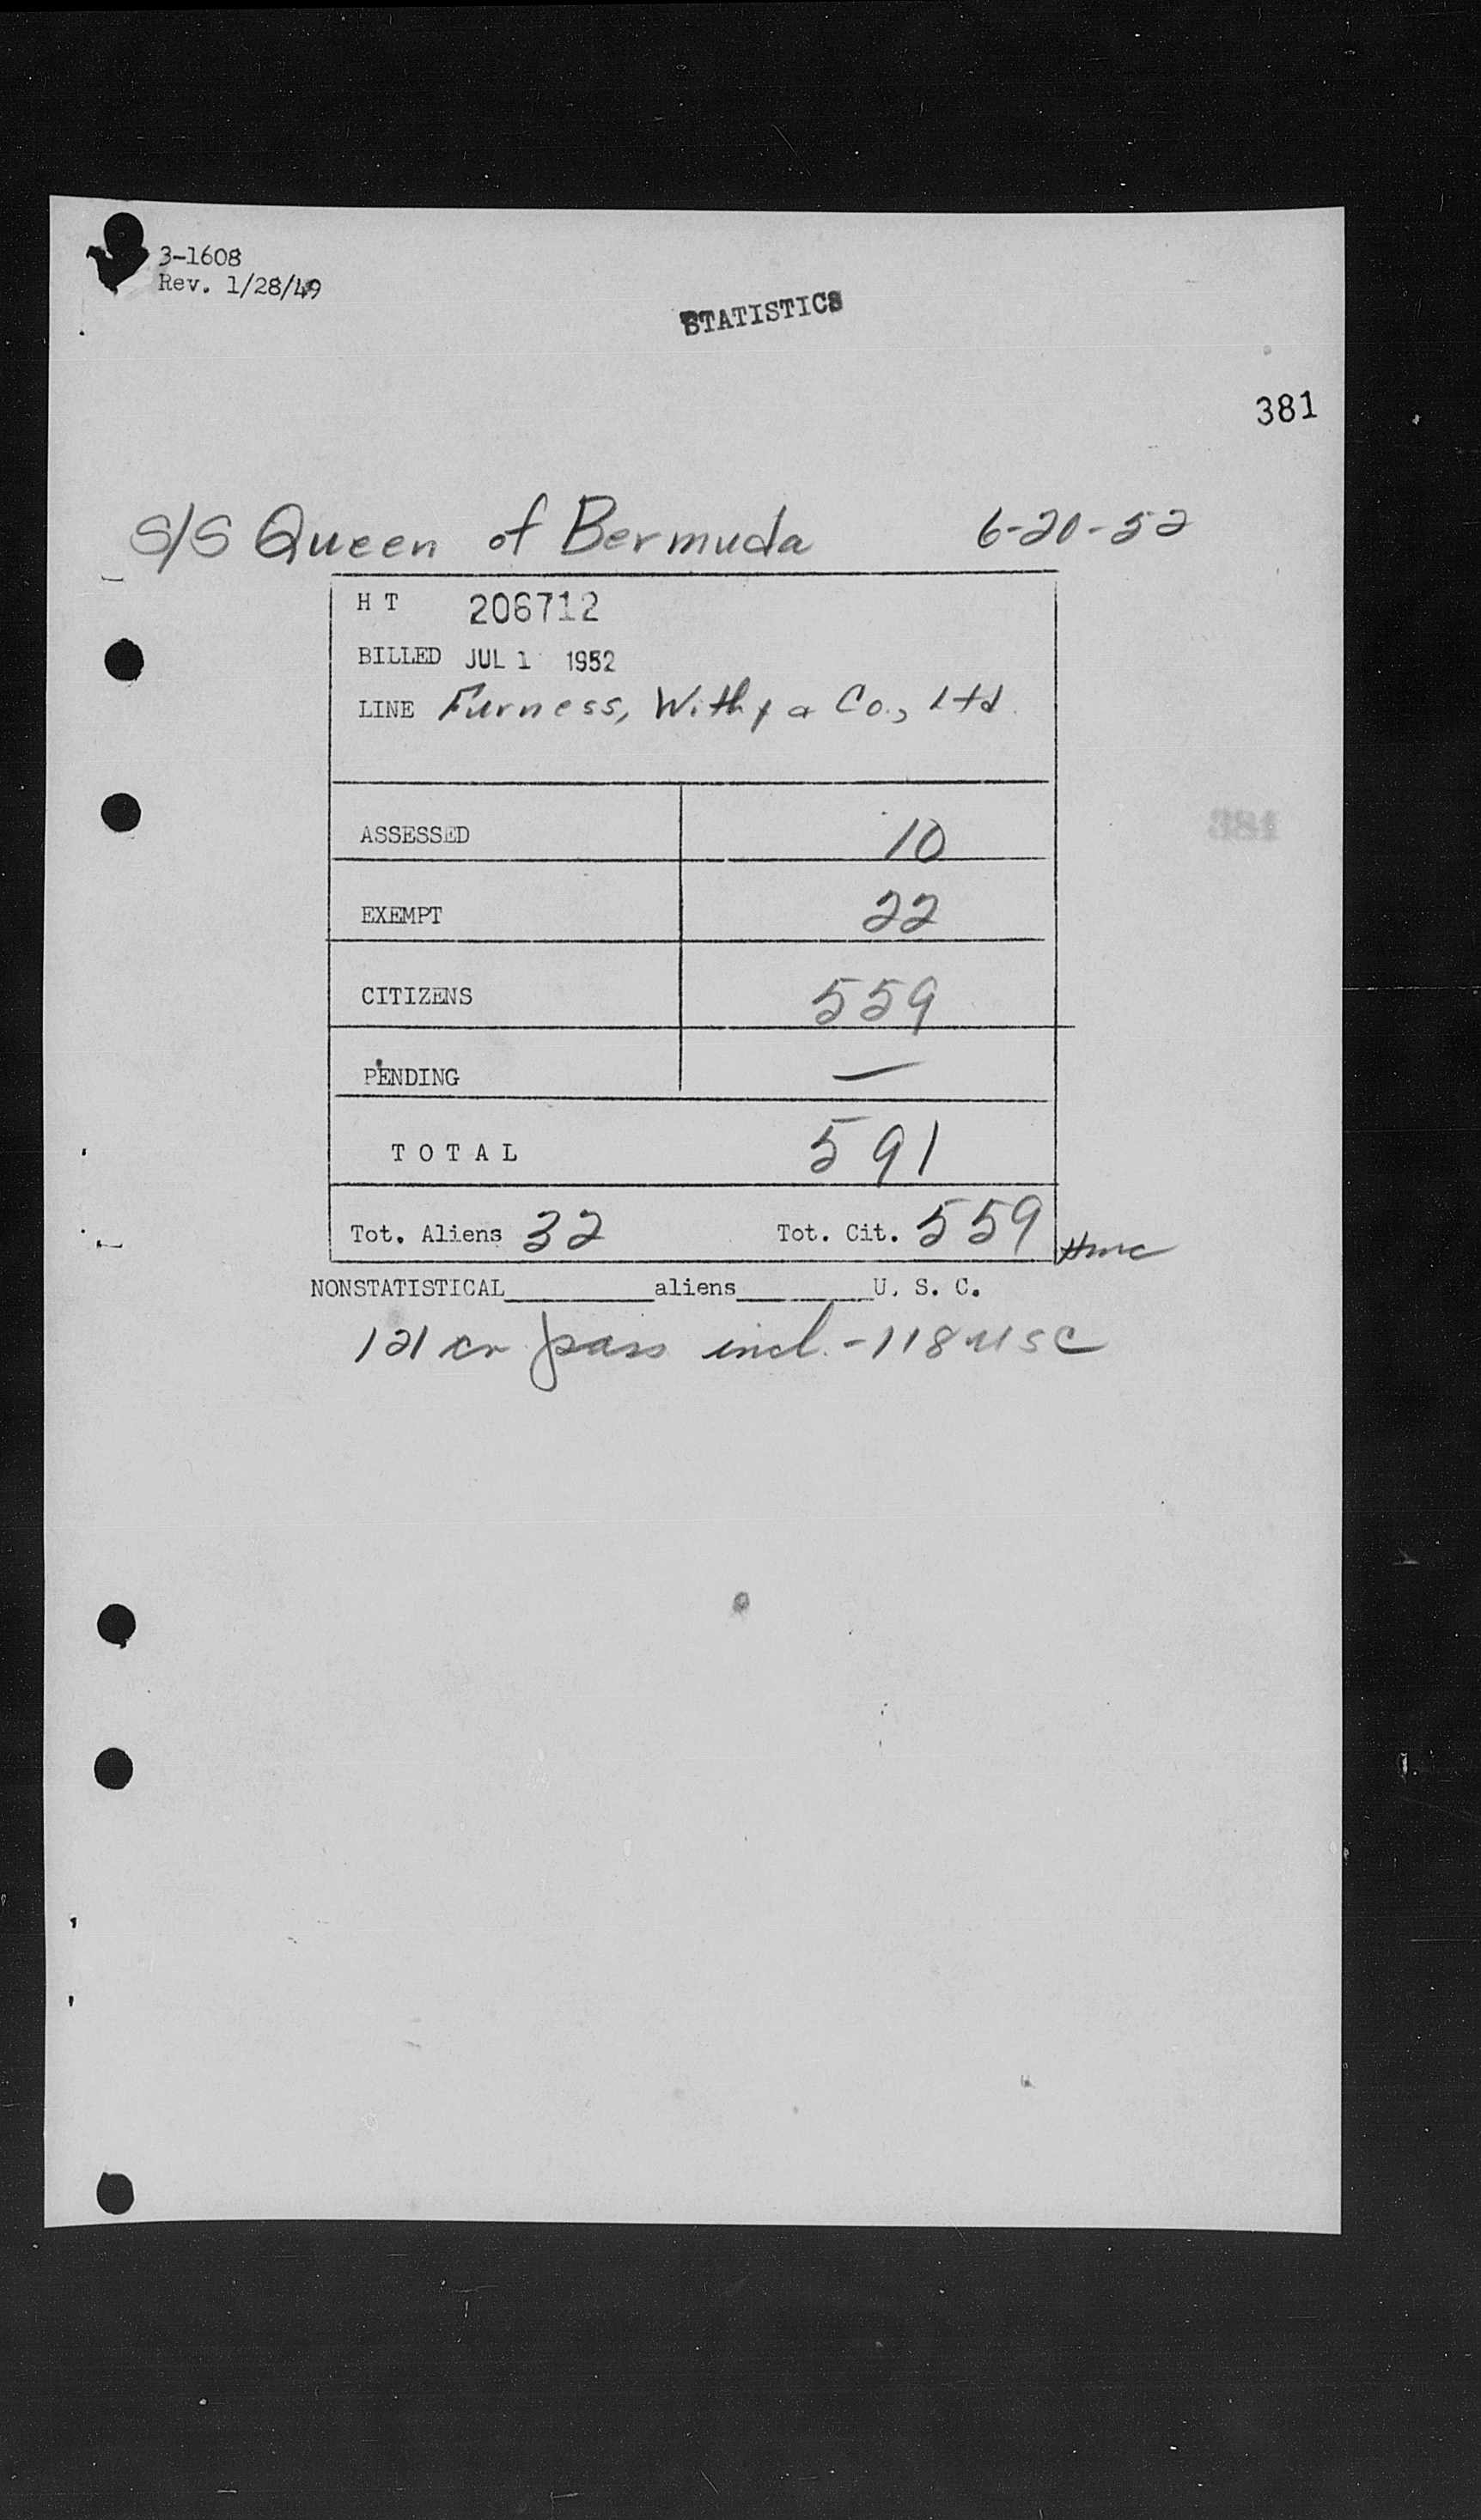 3-1608
Rev. 1/28/49
STATISTICS
381
S/S Queen of Bermuda 6-20-52
H T 206712
BILLED JUL 1 1952
LINE Furness, Withy & Co., Ltd.
381
ASSESSED 10
EXEMPT 22
CITIZENS 559
PENDING —
T O T A L 591
Tot. Aliens 32 Tot. Cit. 559
NONSTATISTICAL__________aliens_________U. S. C.
121 cr pass incl. - 118 USC